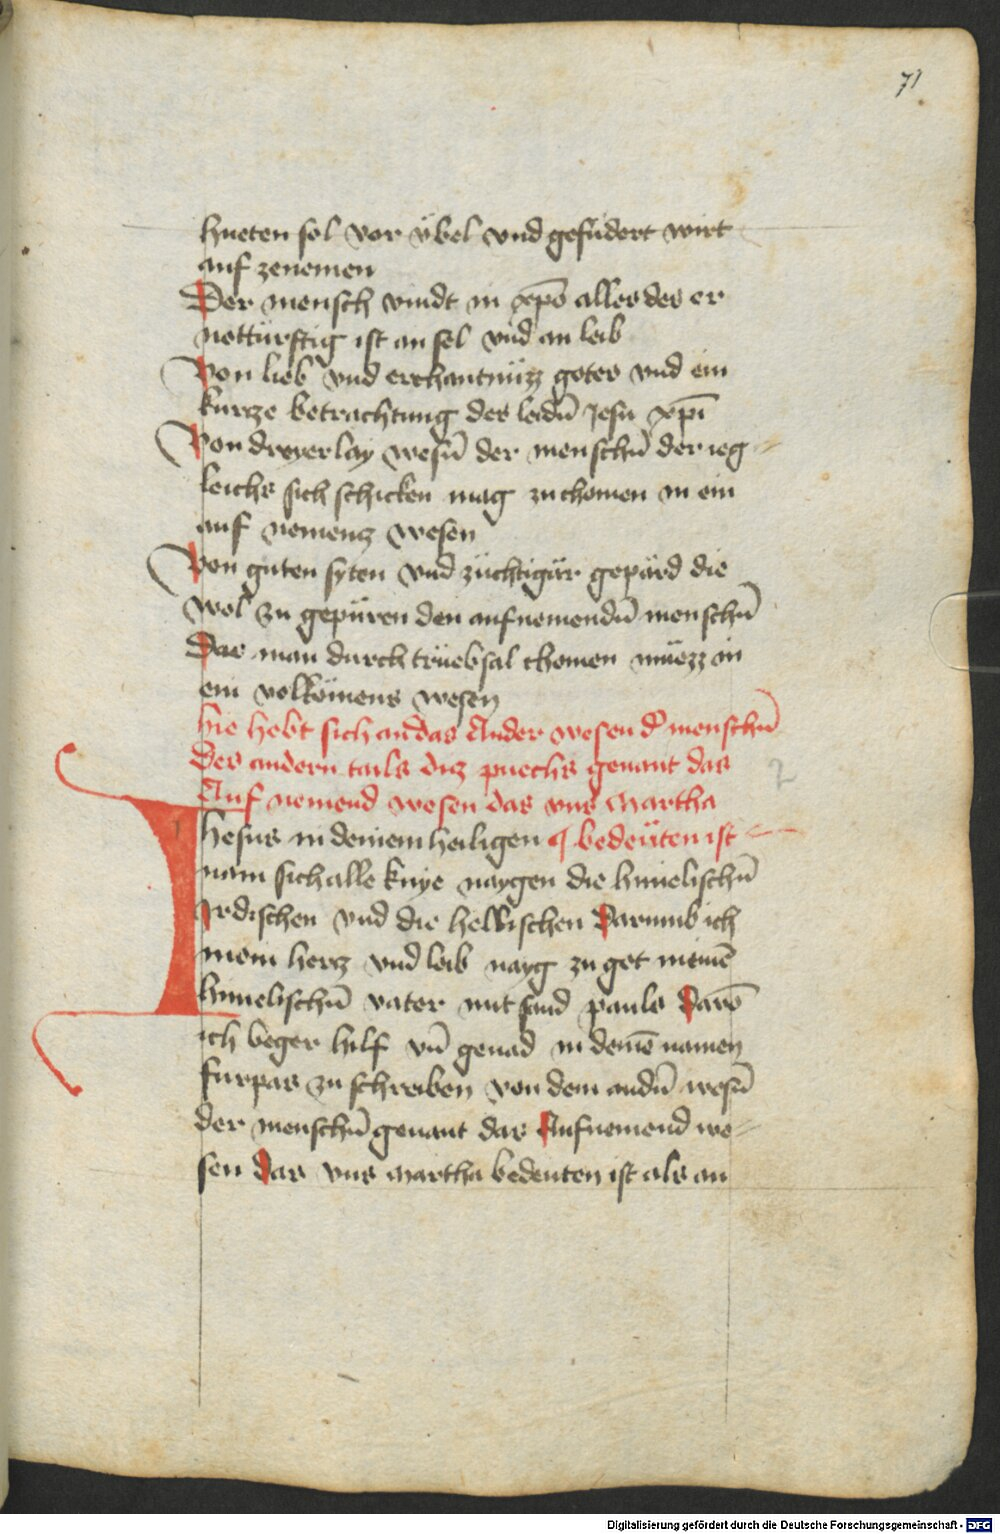 71
hueten sol vor übel vnd gefüdert wirt
auf zenemen
Der mensch vindt in xp̄o alles des er
notturftig ist an sel vnd an leib
Von lieb vnd erchantnüzz gotes vnd ein
kurcze betrachtung des leidn̄ Jesu xp̄i
Von dreyerlay wesn̄ der menschn̄ der ieg
leichs sich schicken mag zu chomen in ein
auf nemencz wesen
Von guten syten vnd züchtigär gepärd die
wol zu gepüren den aufnemendn̄ menschn̄
Das man durch trüebsal chomen müezz in
ein volkömens wesen
hie hebt sich an das Ander wesen d̄ menschn̄
des andern tails dicz puechs genant das
Auf nemend wesen das vns martha
2
Ihesus in deinem heiligen ¶ bedeüten ist
nam sich alle knye naygen die himelischn̄
Irdischen vnd die hellischen Darumb ich
mein hercz vnd leib nayg zu got meinē
himelischn̄ vater mit sand pauls Darō
ich beger hilf vn̄ genad in deinē namen
furpas zu schreiben von dem andn̄ wesn̄
der menschn̄ genant das Aufnemend we-
sen das vns martha bedeuten ist als an
Digitalisierung gefördert durch die Deutsche Forschungsgemeinschaft - DFG